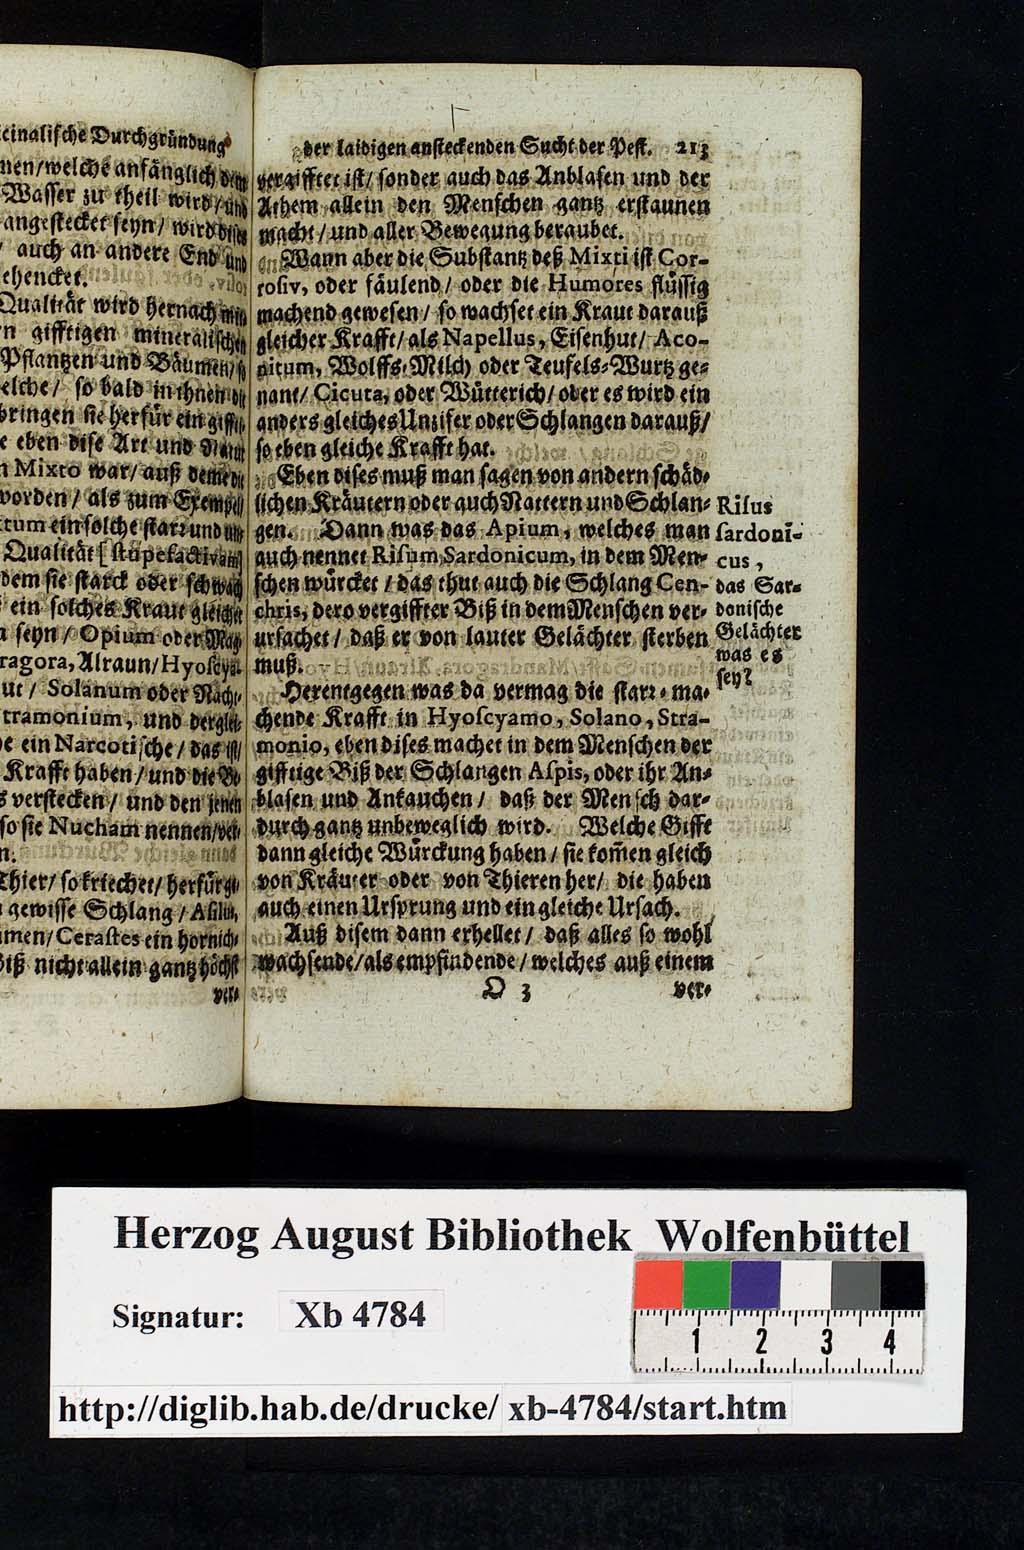 icinalische Durchgründung
nen/welche anfänglich dem
Wasser zu theil wird/und
angestecket seyn/wird dises
auch an andere End und
ehencket.
Qualität wird hernach mit
n gifftigen mineralischen
Pflantzen und Bäumen/so
elche/ so bald in ihnen die
bringen sie herfür ein giffti-
e eben dise Art und Natur
n Mixto war/ auß deme die
worden/ als zum Exempel/
tum ein solche starr und un-
Qualität [stupefactivam]
dem sie starck oder schwach
ein solches Kraut gleichet
n seyn/ Opium oder Mag-
ragora, Alraun/Hyoscya-
ut/ Solanum oder Nacht-
tramonium, und derglei-
e ein Narcotische/ das ist/
Krafft haben/ und die Be-
s verstecken/ und den jenen
so sie Nucham nennen/ver-
n.
Thier/ so kriechet/ herfür ge-
gewisse Schlang/ Asilus,
men/Cerastes ein hornich-
Biß nicht allein gantz höchst
ver-
der laidigen ansteckenden Sucht der Pest. 213
vergifftet ist/ sonder auch das Anblasen und der
Athem allein den Menschen gantz erstaunen
macht/ und aller Bewegung beraubet.
Wann aber die Substantz deß Mixti ist Cor-
rosiv, oder fäulend/ oder die Humores flüssig
machend gewesen/ so wachset ein Kraut darauß
gleicher Krafft/ als Napellus, Eisenhut/ Aco-
nitum, Wolffs-Milch oder Teufels-Wurtz ge-
nant/ Cicuta, oder Wütterich/ oder es wird ein
anders gleiches Unzifer oder Schlangen darauß/
so eben gleiche Krafft hat.
Eben dises muß man sagen von andern schäd-
lichen Kräutern oder auch Nattern und Schlan-
gen. Dann was das Apium, welches man
auch nennet Risum Sardonicum, in dem Men-
schen würcket/ das thut auch die Schlang Cen-
chris, dero vergiffter Biß in dem Menschen ver-
ursachet/ daß er von lauter Gelächter sterben
muß.
Risus
sardonī-
cus,
das Sar-
donische
Gelächter
was es
sey?
Herentgegen was da vermag die starr-ma-
chende Krafft in Hyoscyamo, Solano, Stra-
monio, eben dises machet in dem Menschen der
gifftige Biß der Schlangen Aspis, oder ihr An-
blasen und Ankauchen/ daß der Mensch dar-
durch gantz unbeweglich wird. Welche Gifft
dann gleiche Würckung haben/ sie kom̄en gleich
von Kräuter oder von Thieren her/ die haben
auch einen Ursprung und ein gleiche Ursach.
Auß disem dann erhellet/ daß alles so wohl
wachsende/als empfindende/welches auß einem
O 3 ver-
Herzog August Bibliothek Wolfenbüttel
Signatur: Xb 4784
1 2 3 4
http://diglib.hab.de/drucke/ xb-4784/start.htm